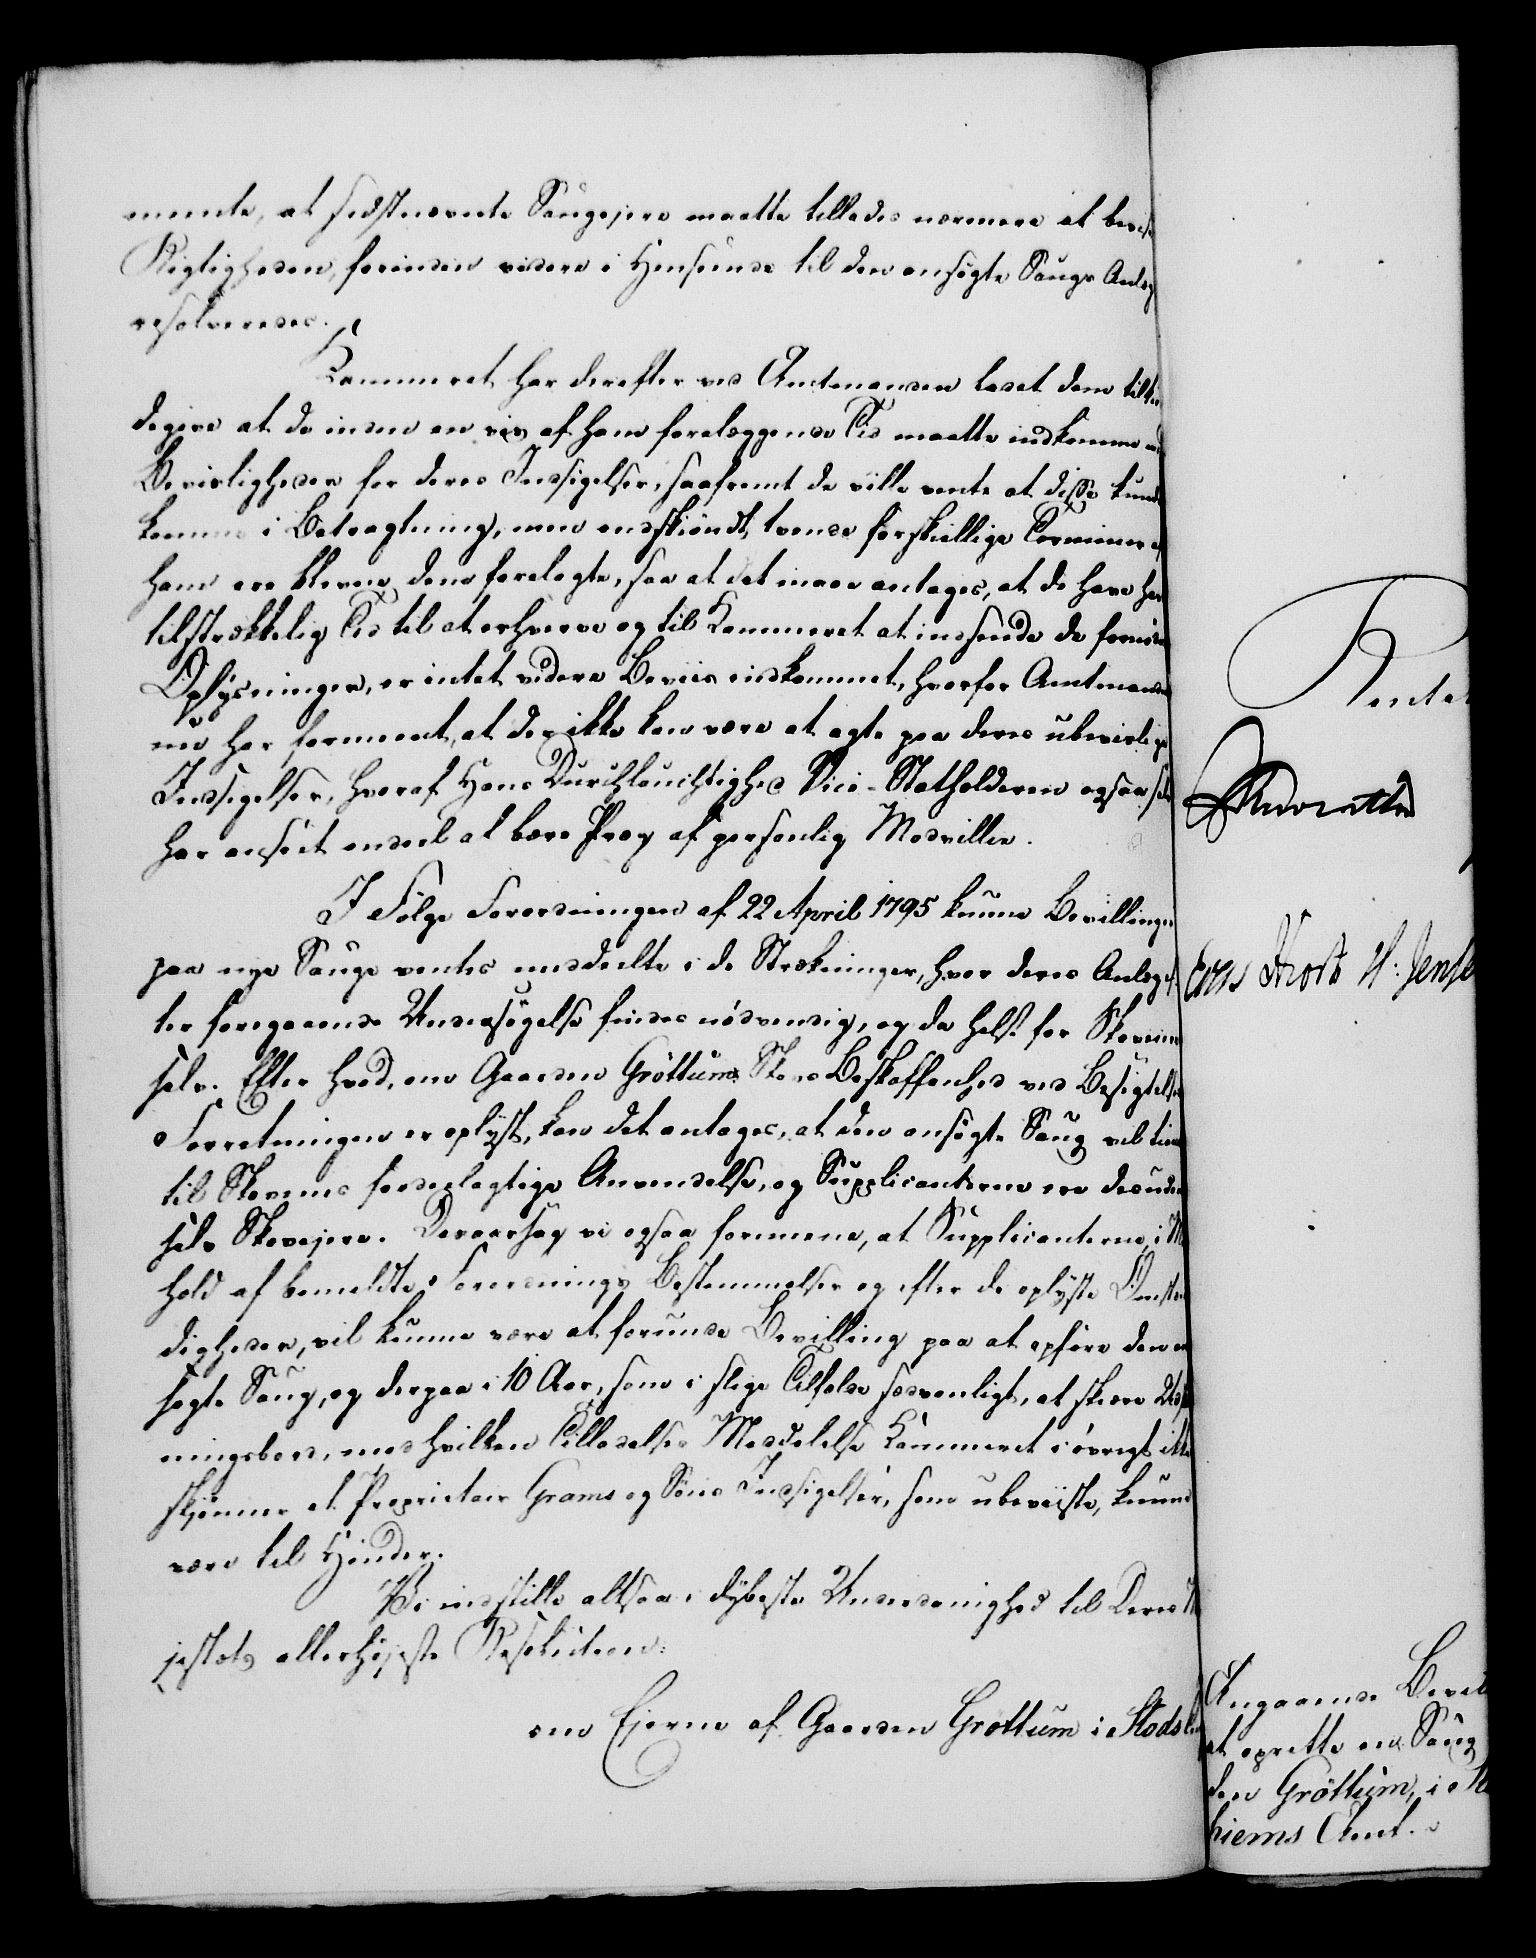 meente, at sidstnævnte Saugejere maatte tillades nærmere at bevise
Rigtigheden, forinden videre i Henseende til den ansøgte Saugs Anlæg
resolveredes.
Kammeret har derefter ved Amtmanden ladet dem tilkien
degive at de inden en vis af ham forelæggende Tid maatte indkomme med
Beviisligheder for deres Indsigelser, saafremt de ville vente at disse kunde
komme i Betragtning, men endskiøndt tvende forskiellige Terminer af
ham ere blevne dem forelagte, saa at det maae antages, at de have havt
tilstrækkelig Tid til at erhverve og til Kammeret at indsende de fornødne
Oplysninger, er intet videre Beviis indkommet, hvorfor Amtmanden
nu har formeent, at der ikke kan være at agte paa deres ubeviislige
Indsigelser, hvoraf Hans Durchlauchtighed Vice-Statholderen ogsaa selv
har anseet endeel at bære Præg af personlig Modvillie.
I Følge Forordningen af 22 April 1795 kunne Bevillinger
paa nye Sauge ventes meddeelte i de Strækninger, hvor deres Anlæg ef
ter foregaaende Undersøgelse findes nødvendig, og da helst for Skoveierne
selv. Efter hvad, om Gaarden Grøttums Skovs Beskaffenhed ved Besigtelses
Forretningen er oplyst, kan det antages, at den ansøgte Saug vil tiene
til Skovens fordeelagtige Anvendelse, og Supplicanterne ere desuden
selv Skovejere. Deraarsag vi ogsaa formene, at Supplicanterne, i M
hold af bemeldte Forordnings Bestemmelser og efter de oplyste Omstæn
digheder, vil kunne være at forunde Bevilling paa at opføre den an
søgte Saug, og derpaa i 10 Aar, som i slige Tilfælde sædvanligt, at skiære Udskib
ningsbord, mod hvilken Tilladelses Meddelelse Kammeret i øvrigt ikke
skjønner at Proprietair Grams og Søns Indsigelser, som ubeviiste, kunne
være til Hinder.
Vi indstille altsaa i dybeste Underdanighed til Deres M
jestæts allerhøjeste Resolution:
om Ejerne af Gaarden Grøttum i Stods
Rentek
Hans Hiorth H: Jense
Angaaende Bevil
at oprette en Saug
den Grøttum, i St
hiems Amt.